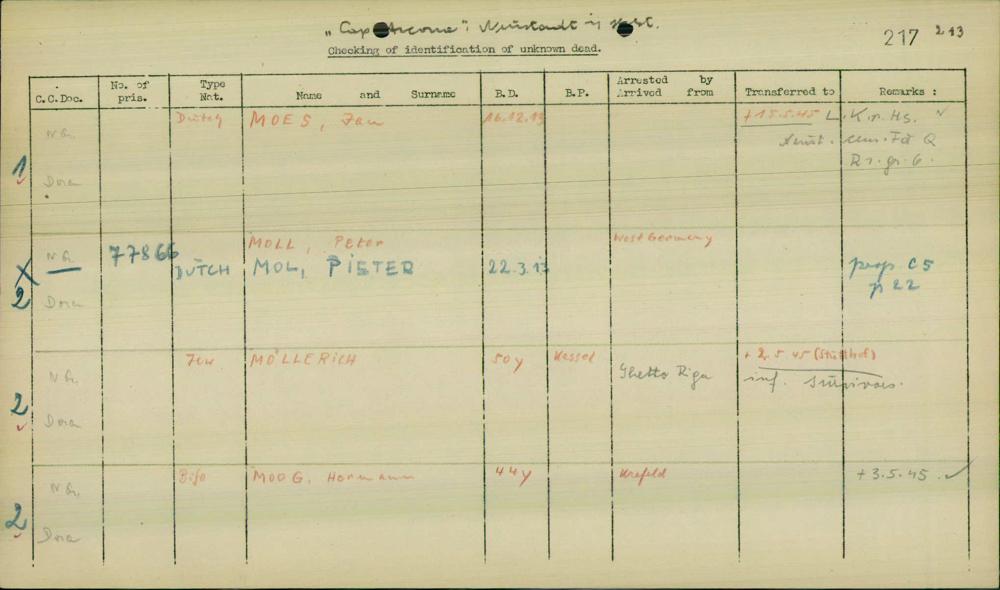 „Cap Arcona", Neustadt i/ Holst.
217 213
Checking of identification of unknown dead.
C.C.Doc. No. of pris. Type Nat. Name and Surname B.D. B.P. Arrested by Arrived from Transferred to Remarks :
1 N G. Dutch MOES, Jan 16.12.13 +15.5.45 L. Kr. Hs. ✓
Neust.
Dora Gr. 6.
N G. MOLL, Peter West Germany
X 2 77866 DUTCH MOL, PIETER 22.3.13 prop. C5
Dora p 22
Jew MÖLLERICH 50y Kassel + 2.5.45 (Stutthof)
2 N G. Ghetto Riga inf. survivors.
Dora
Bifo MOOG, Hermann 44y Krefeld +3.5.45. ✓
2 N G.
Dora